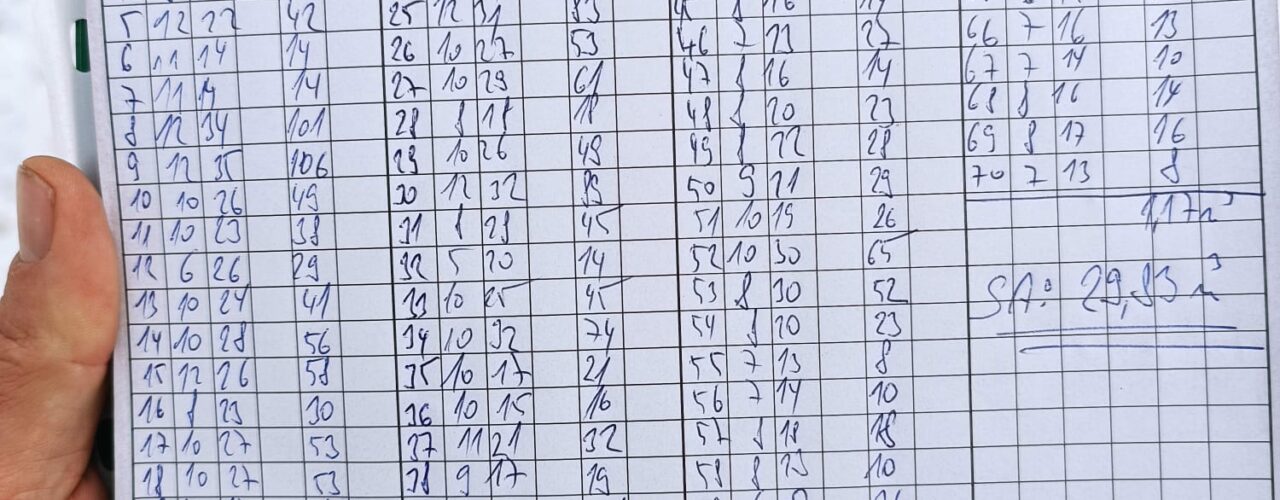 5 12 22 42
6 11 14 14
7 11 14 14
8 12 34 101
9 12 35 106
10 10 26 49
11 10 23 38
12 6 26 29
13 10 24 41
14 10 28 56
15 12 26 58
16 8 23 30
17 10 27 53
18 10 27 53
25 12 31 83
26 10 27 53
27 10 29 61
28 8 18 18
29 10 26 49
30 12 32 89
31 8 28 45
32 5 20 14
33 10 25 45
34 10 32 74
35 10 17 21
36 10 15 16
37 11 21 32
38 9 17 19
46 7 23 27
47 8 16 14
48 8 20 23
49 8 22 28
50 9 21 29
51 10 19 26
52 10 30 65
53 8 30 52
54 8 20 23
55 7 13 8
56 7 14 10
57 8 18 18
58 8 13 10
66 7 16 13
67 7 14 10
68 8 16 14
69 8 17 16
70 7 13 8
1,17m³
SA: 29,83 m³